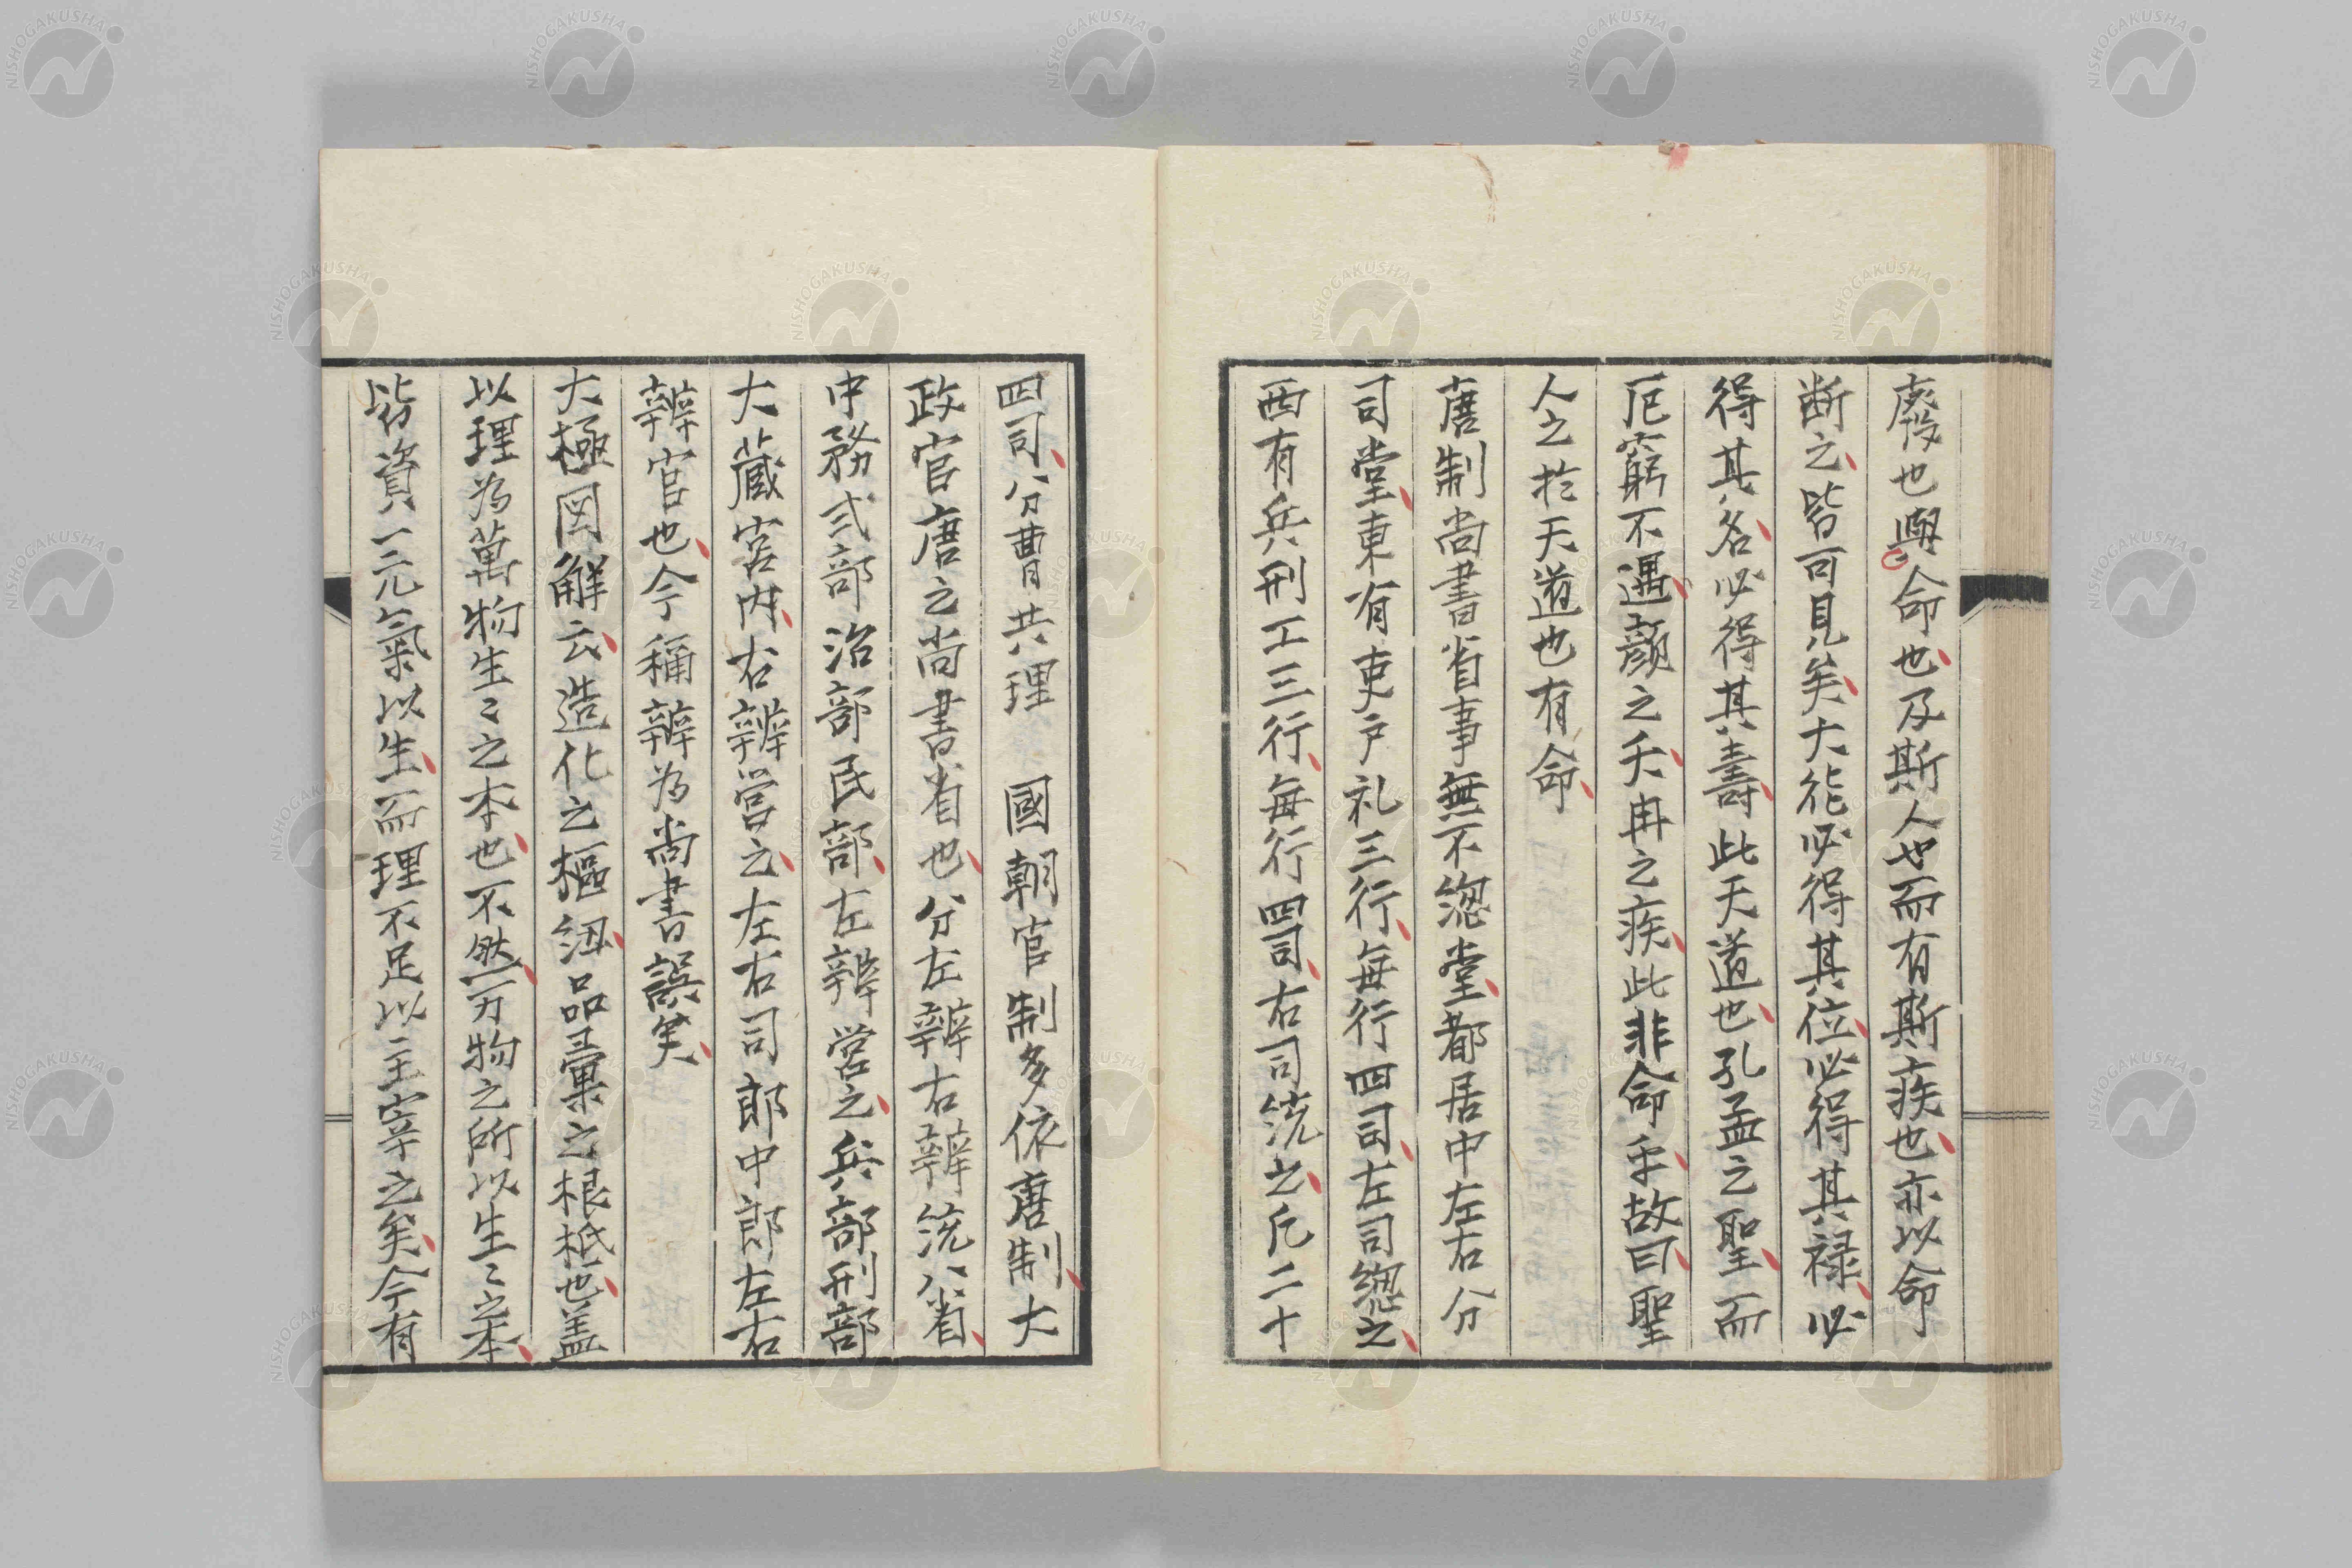 廢也與命也及斯人也而有斯疾也亦以命
断之皆可見矣大德必得其位必得其禄必
得其名必得其壽此天道也孔孟之聖而
厄窮不遇顔之夭冉之疾此非命乎故曰聖
人之於天道也有命
唐制尚書省事無不總堂都居中左右分
司堂東有吏戸礼三行毎行四司左司總之
西有兵刑工三行毎行四司右司統之凡二十
四司分曹共理 國朝官制多依唐制大
政官唐之尚書省也分左辨右辨統八省
中務式部治部民部左辨営之兵部刑部
大蔵宮内右辨営之左右司郎中郎左右
辨官也今稱辨為尚書誤矣
大極図解云造化之樞紐品彙之根柢也盖
以理為萬物生々之本也不然万物之所以生々之本
皆資一元氣以生而理不足以主宰之矣今有
NISHOGAKUSHA